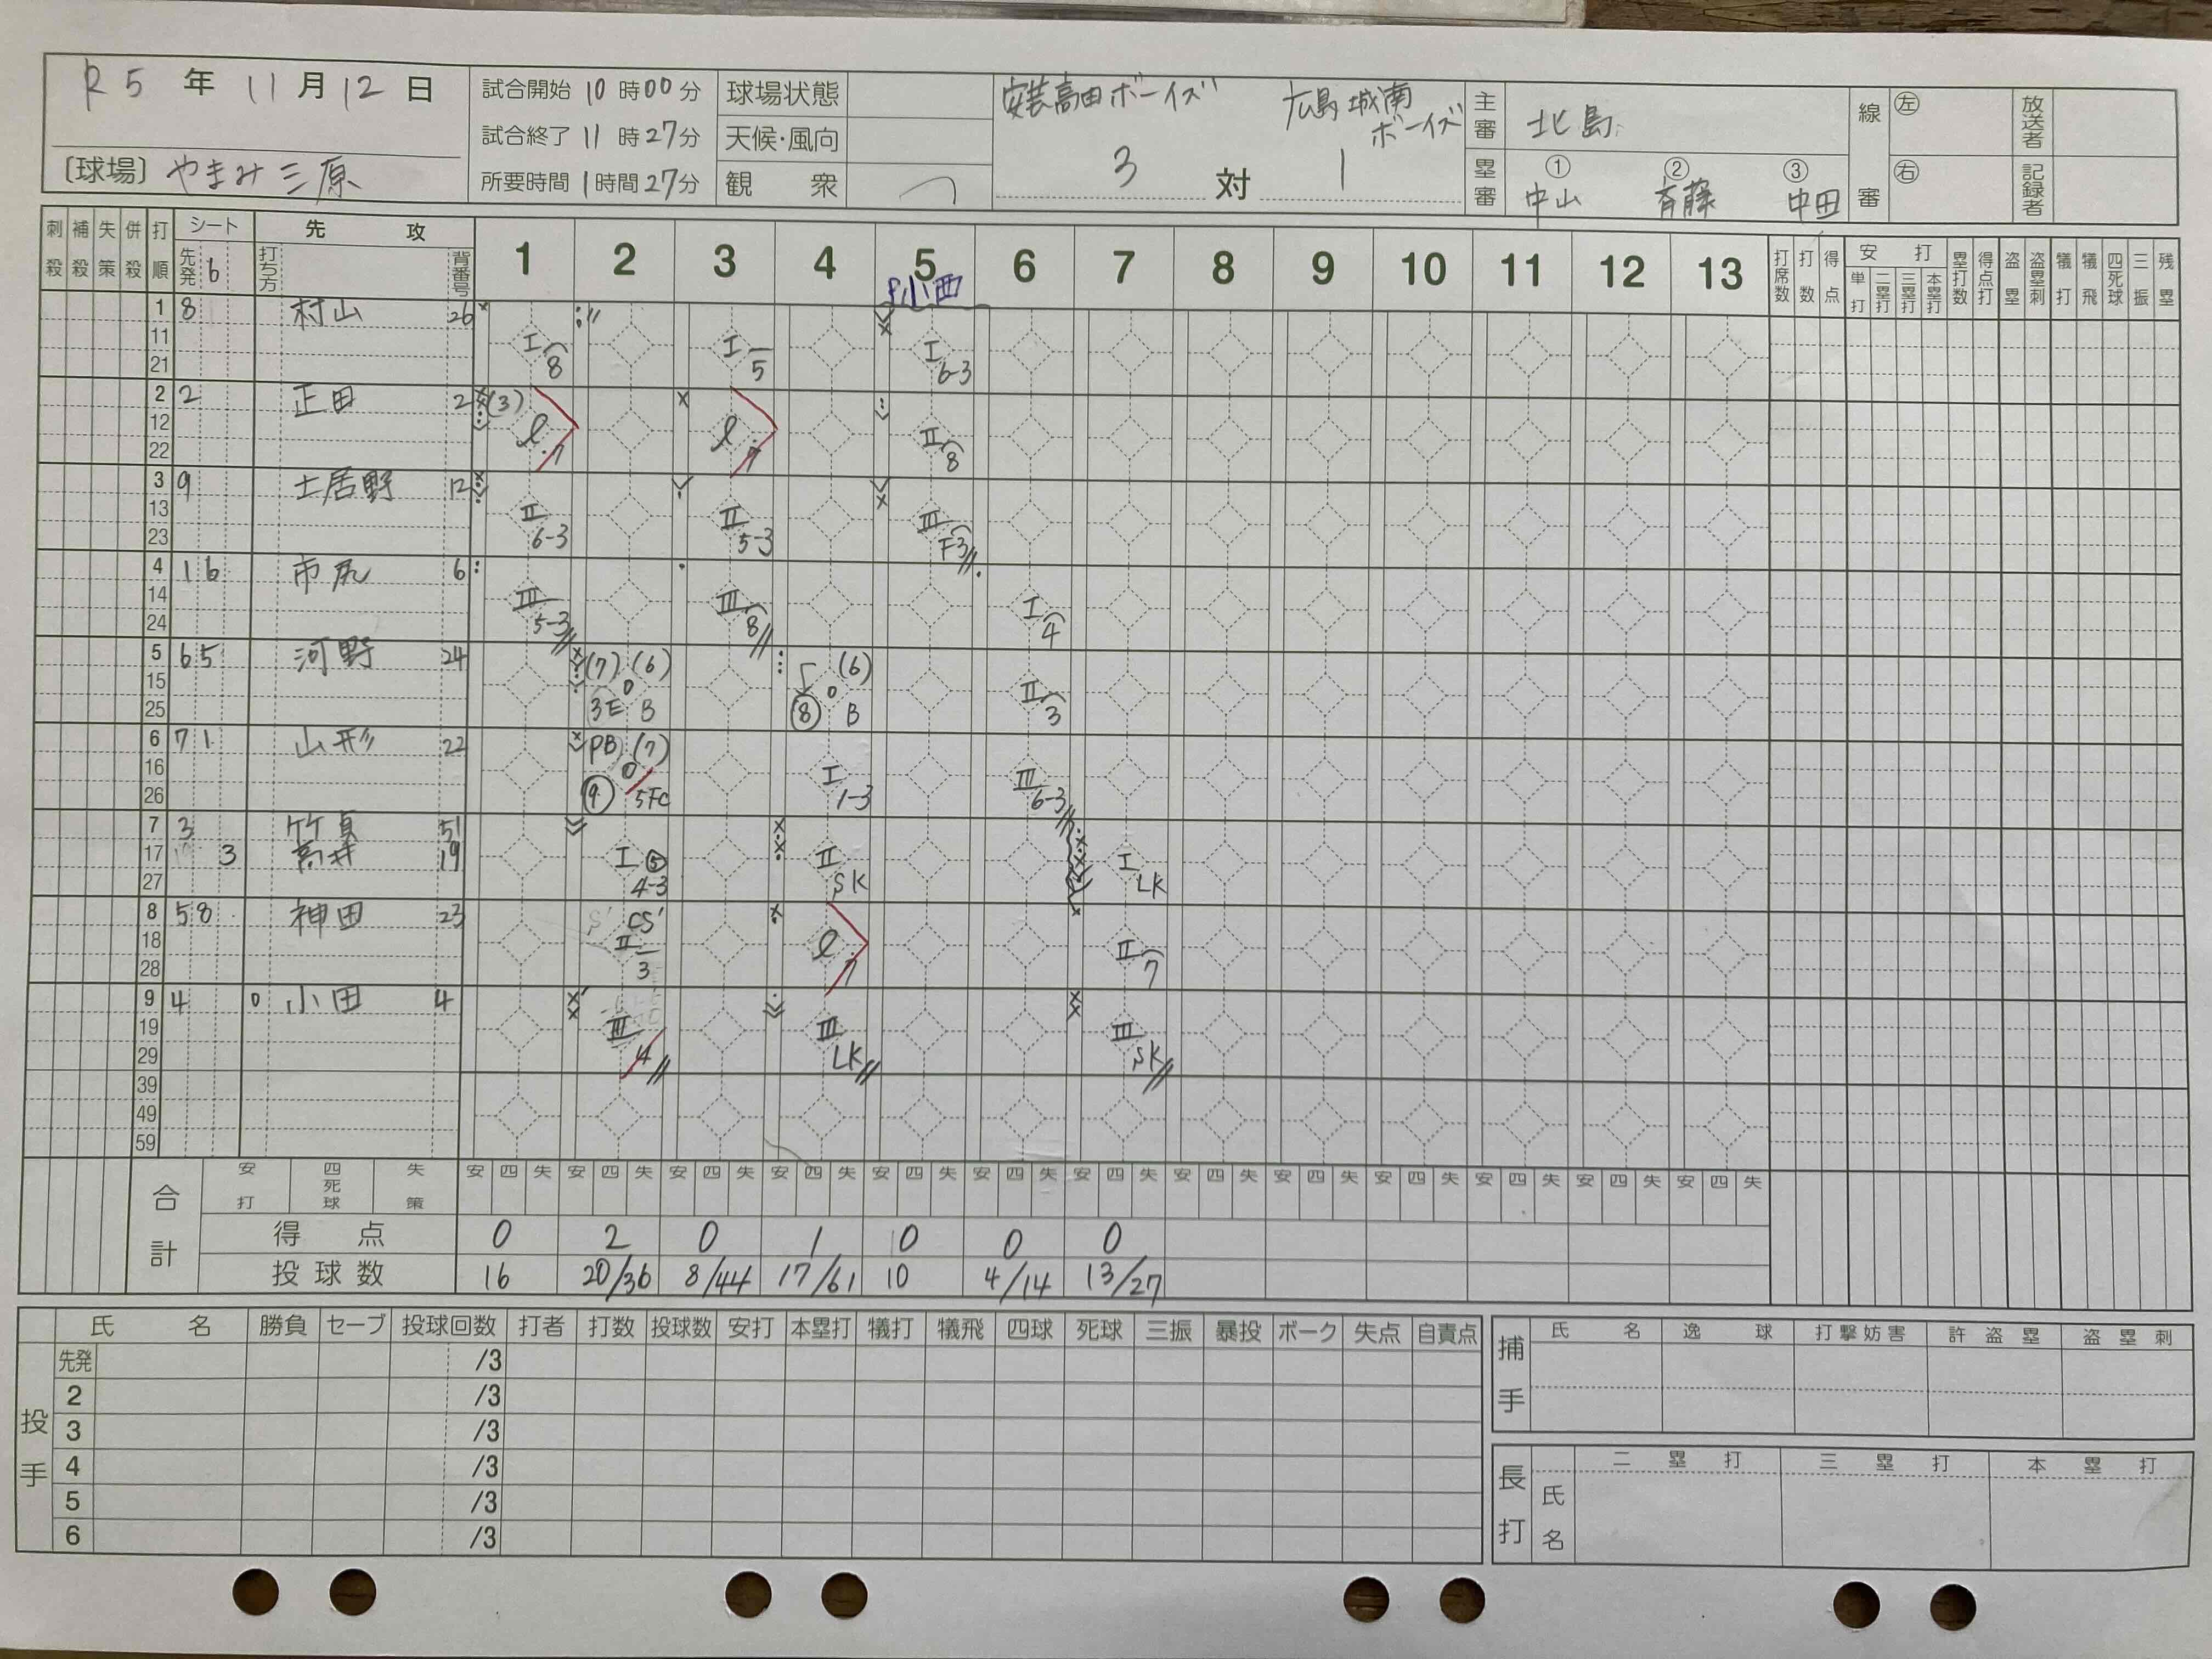 R5 年 11 月 12 日
〔球場〕 やまみ三原
試合開始 10 時 00 分
試合終了 11 時 27 分
所要時間 1 時間 27 分
球場状態
天候・風向
観 衆
安芸高田ボーイズ 広島城南ボーイズ
3 対 1
主審 北島
塁審 ① 中山 ② 斉藤 ③ 中田
線審 左 右
放送者
記録者
刺殺 補殺 失策 併殺 打順 シート 先発 6 打ち方 先 攻 背番号 1 2 3 4 5 6 7 8 9 10 11 12 13 打席数 打数 得点 安 打 単打 二塁打 三塁打 本塁打 塁打数 得点打 盗塁 盗塁刺 犠打 犠飛 四死球 三振 残塁
P小西
1 11 21 8 村山 26 I 8 I 5 I 6-3
2 12 22 2 正田 2 (3) l 7 l 7 II 8
3 13 23 9 土居野 12 II 6-3 II 5-3 III F3
4 14 24 1 6 市尻 6 III 5-3 III 8 I 4
5 15 25 6 5 河野 24 (7) (6) 3E B (6) ⑧ B II 3
6 16 26 7 1 山形 22 PB (7) ⑨ 5FC I 1-3 III 6-3
7 17 27 3 51
3 高井 19 I ⑤ 4-3 II SK I LK
8 18 28 5 8 神田 23 CS' II 3 l 7 II 7
9 19 29 4 小田 4 III 4 III LK III SK
39 49 59
合計 安打 四死球 失策 安 四 失 安 四 失 安 四 失 安 四 失 安 四 失 安 四 失 安 四 失 安 四 失 安 四 失 安 四 失 安 四 失 安 四 失 安 四 失
得 点 0 2 0 1 0 0 0
投球数 16 20/36 8/44 17/61 10 4/14 13/27
投手 氏 名 勝負 セーブ 投球回数 打者 打数 投球数 安打 本塁打 犠打 犠飛 四球 死球 三振 暴投 ボーク 失点 自責点
先発 /3
2 /3
3 /3
4 /3
5 /3
6 /3
捕手 氏 名 逸 球 打撃妨害 許盗塁 盗塁刺
長打 氏名 二塁打 三塁打 本塁打